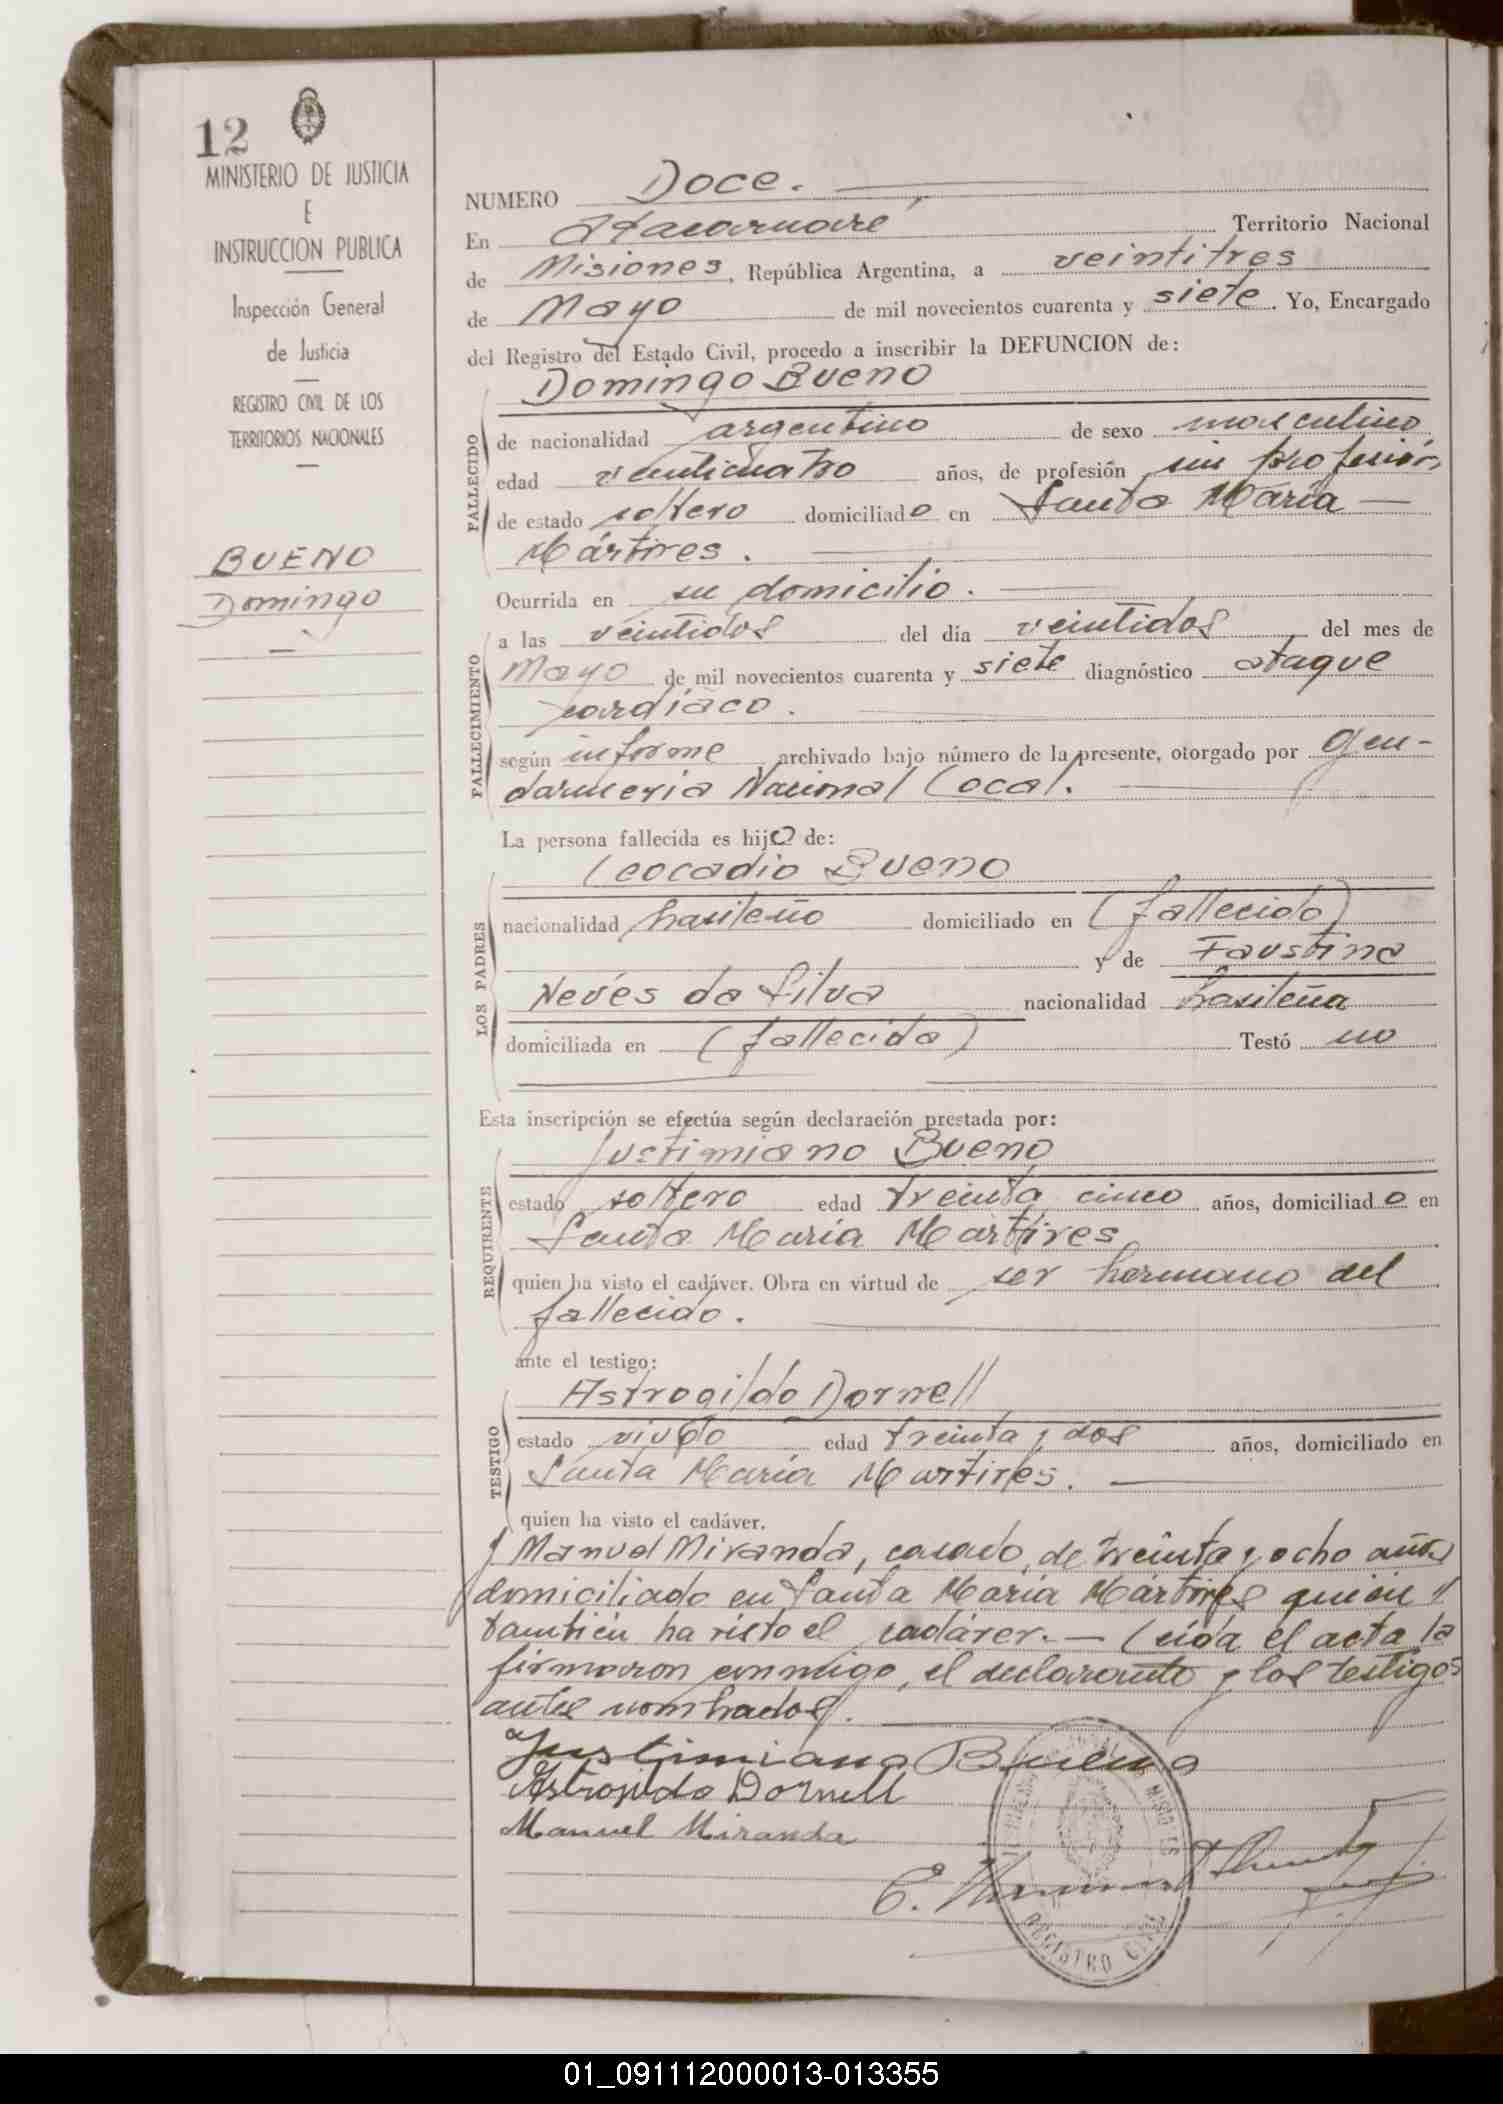 12
MINISTERIO DE JUSTICIA
E
INSTRUCCION PUBLICA
Inspección General
de Justicia
REGISTRO CIVIL DE LOS
TERRITORIOS NACIONALES
BUENO
Domingo
NUMERO Doce.
En Itacaruaré, Territorio Nacional
de Misiones, República Argentina, a veintitres
de Mayo de mil novecientos cuarenta y siete. Yo, Encargado
del Registro del Estado Civil, procedo a inscribir la DEFUNCION de:
Domingo Bueno
FALLECIDO
de nacionalidad argentino de sexo masculino
edad venticuatro años, de profesión sin profesión,
de estado soltero domiciliado en Santa María
Mártires.
Ocurrida en su domicilio.
FALLECIMIENTO
a las veintidos del día veintidos del mes de
Mayo de mil novecientos cuarenta y siete diagnóstico ataque
cardíaco.
según informe archivado bajo número de la presente, otorgado por Gen-
darmeria Nacional Local.
La persona fallecida es hijo de:
LOS PADRES
Leocadio Bueno
nacionalidad brasileño domiciliado en (fallecido)
y de Faustina
Neves da Silva nacionalidad brasileña
domiciliada en (fallecida) Testó no
Esta inscripción se efectúa según declaración prestada por:
REQUIRENTE
Justimiano Bueno
estado soltero edad treinta cinco años, domiciliado en
Santa María Martires
quien ha visto el cadáver. Obra en virtud de ser hermano del
fallecido.
ante el testigo:
TESTIGO
Astrogildo Dornell
estado viudo edad treinta y dos años, domiciliado en
Santa María Martires.
quien ha visto el cadáver.
y Manuel Miranda, casado, de treinta y ocho años
domiciliado en Santa María Mártires quien
también ha visto el cadáver.— Leida el acta la
firmaron conmigo, el declarante y los testigos
antes nombrados.
Justimiano Bueno
Astrojildo Dornell
Manuel Miranda
REGISTRO CIVIL
01_091112000013-013355